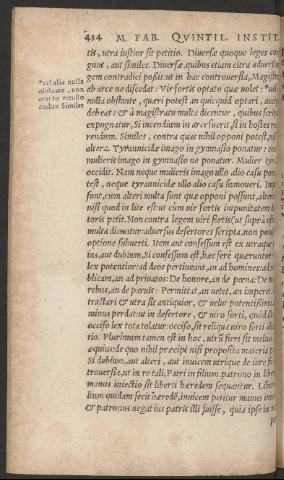 434 M. FAB. QVINTIL. INSTIT.
tis, utra iustior sit petitio. Diuersæ quoque leges con
gunt, aut similes. Diuersæ, quibus etiam citra aduersu
gem contradici possit: ut in hac controuersia, Magistra
ab arce ne discedat: Vir fortis optato quæ uolet: *uel
nulla obstante, queri potest an quicquid optari, acci
debeat: & à magistratu multa dicentur, quibus scrip
expugnatur, Si incendium in arce fuerit, si in hostes
rendum. Similes, contra quas nihil opponi potest,
altera. Tyrannicidæ imago in gymnasio ponatur: con
mulieris imago in gymnasio ne ponatur. Mulier tyra
occidit. Nam neque mulieris imago ullo alio casu pon
test, neque tyrannicidæ ullo alio casu summoueri. Im
sunt, cum alteri multa sunt quæ opponi possint, alteri
nisi quod in lite est: ut cum uir fortis impunitatem de
toris petit. Non contra legem uiri fortis (ut suprà ost
multa dicuntur: aduersus desertores scripta, non pot
optione subuerti. Item aut confessum est ex utraque
ius, aut dubium. Si confessum est, hæc ferè quæruntur
lex potentior: ad deos pertineant, an ad homines: ad rem
blicam, an ad priuatos: De honore, an de pœna: De m
rebus, an de paruis: Permittat an uetet, an imperet
tractari & utra sit antiquior, & uelut potentissimum
minus perdat: ut in desertore, & uiro forti, quòd illo
occiso lex tota tolatur: occiso, sit reliqua uiro forti alia
tio. Plurimum tamen est in hoc, utrum fieri sit melius,
aequius: de quo nihil præcipi nisi proposita materia po
Si dubium, aut alteri, aut inuicem utrique de iure fit
trouersia, ut in re tali, Patri in filium, patrono in liber
manus iniectio sit: liberti hæredem sequantur. Liber
lium quidam fecit hæredem, inuicem petitur manus in
& patronus negat ius patris illi fuisse, quia ipse in m
*re tali a nulla
obstante, non
erat in vetusto
codice Similes